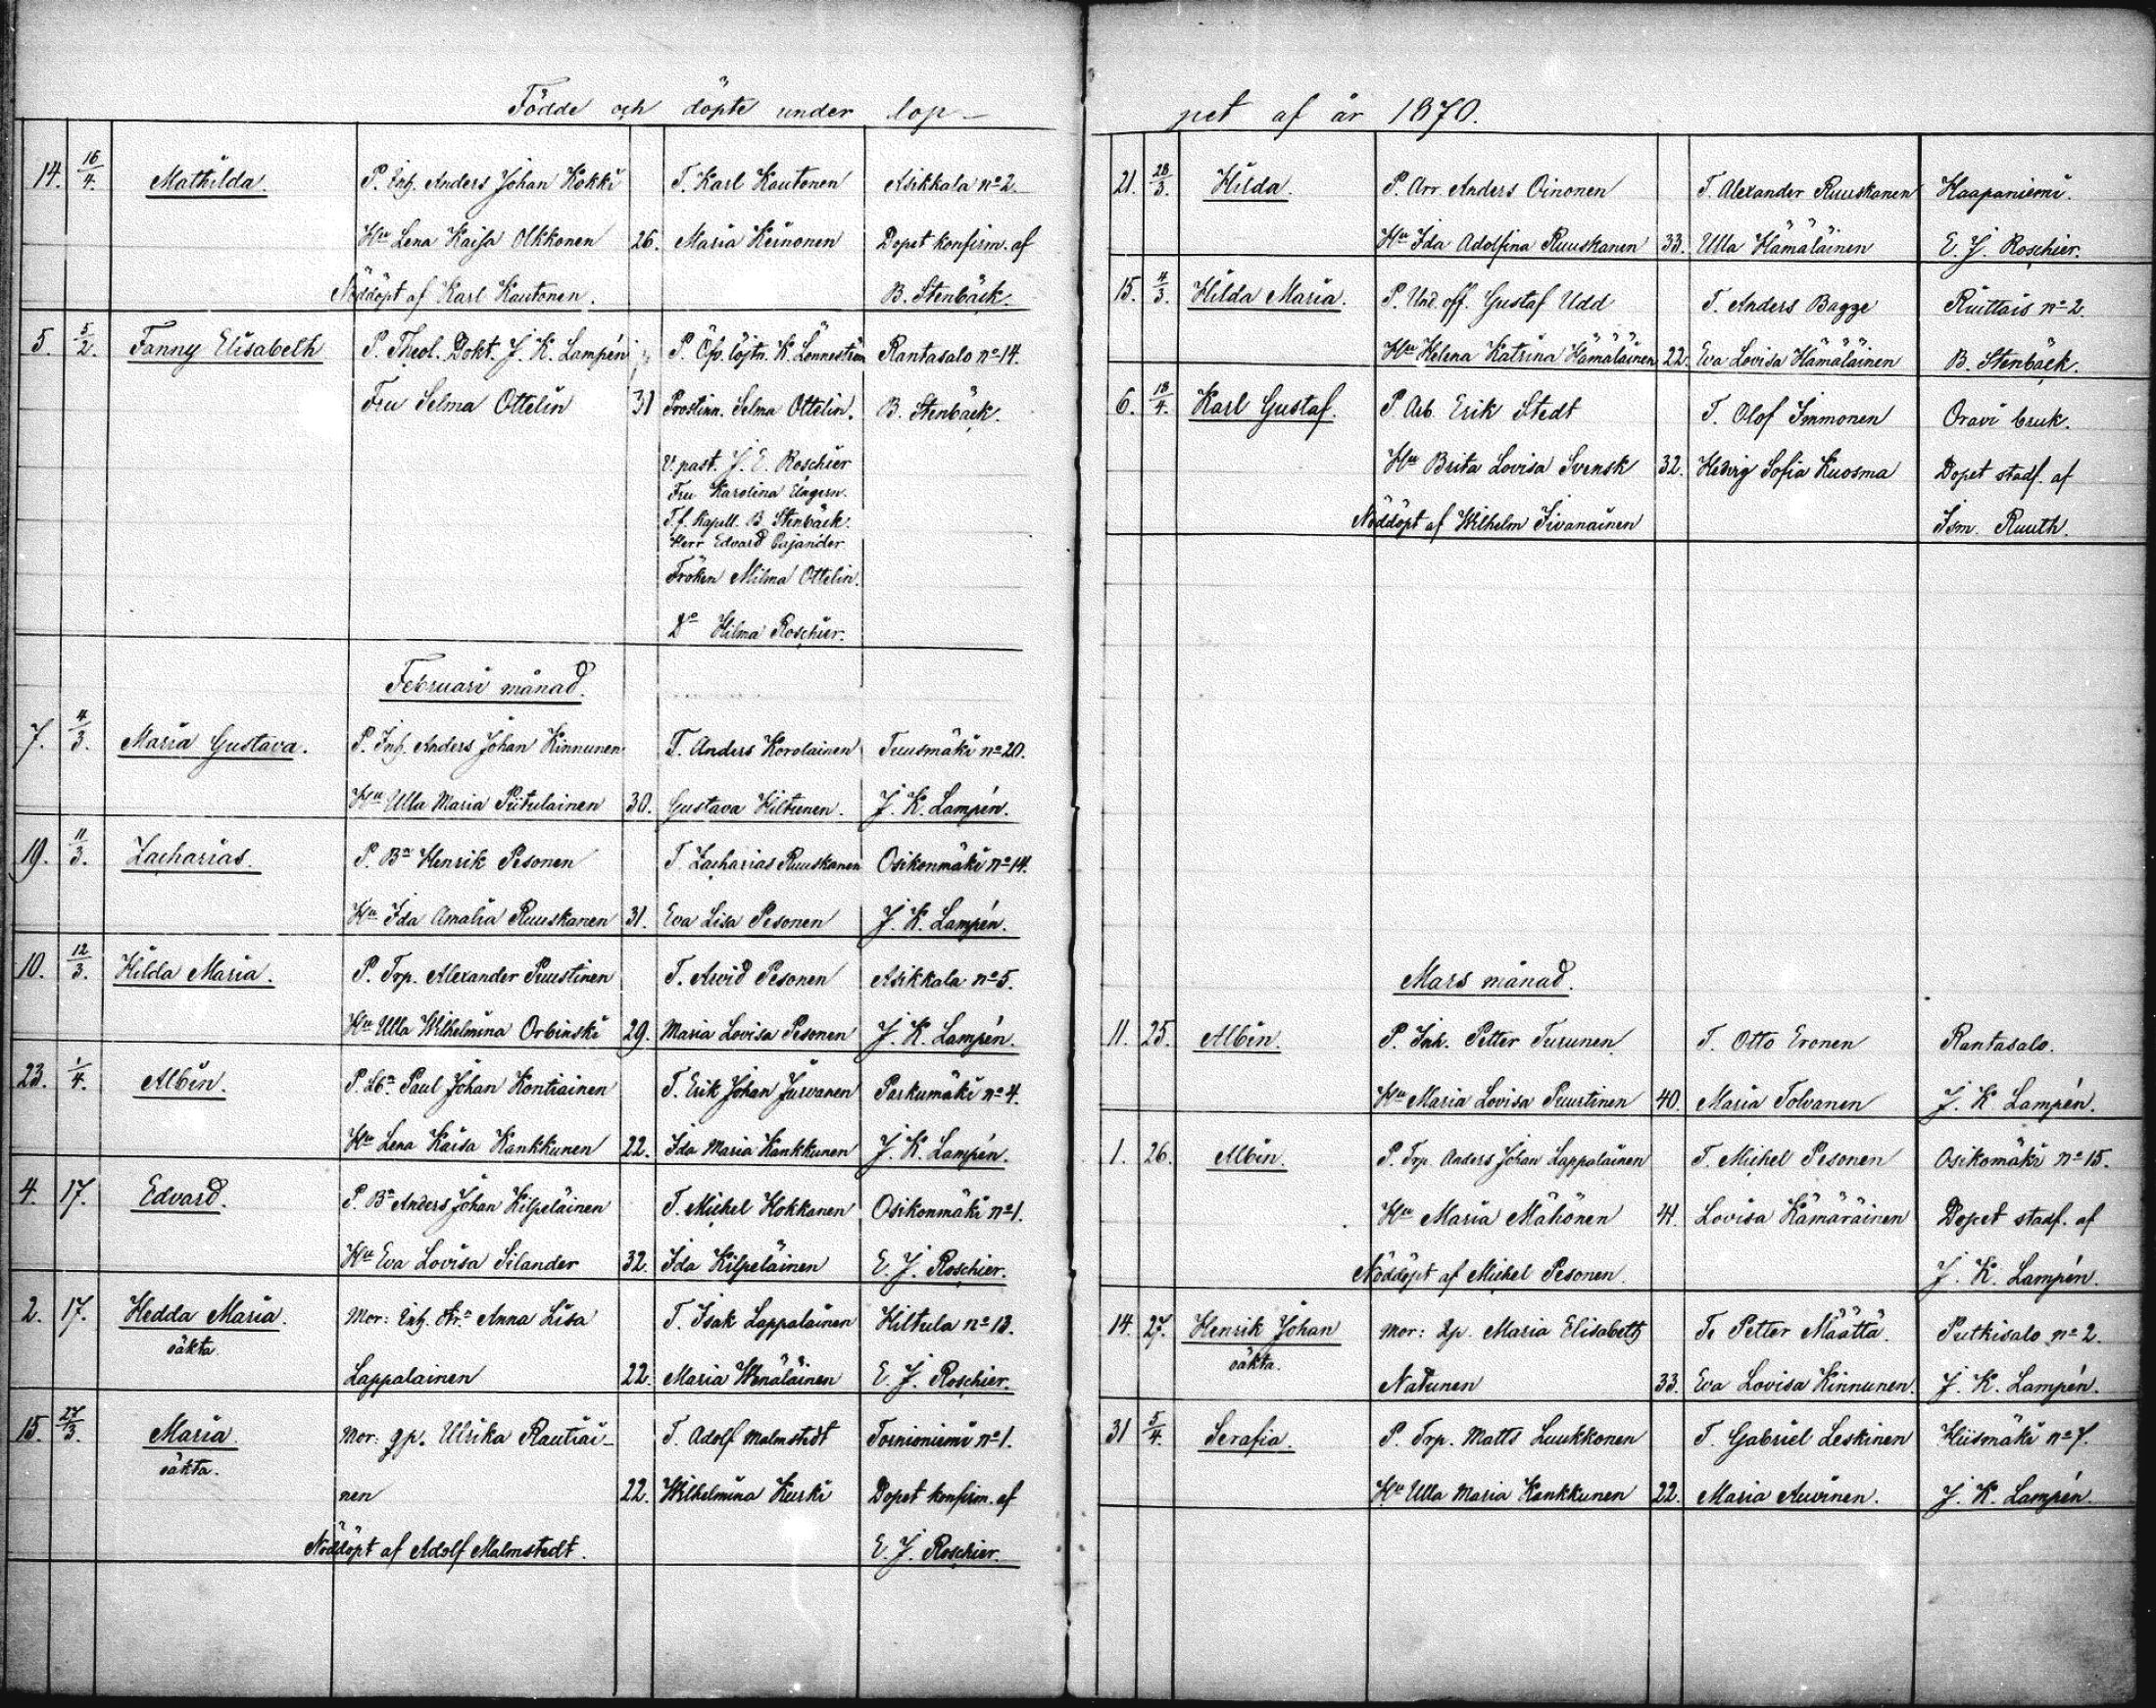 Födde och döpte under lop-
14. 16/4. Mathilda. P. Inh. Anders Johan Kokki T. Karl Kautonen Asikkala nº 2.
Hu Lena Kaisa Olkkonen 26. Maria Keinonen Dopet konfirm. af
Nöddöpt af Karl Kautonen. B. Stenbäck.
5. 5/2. Fanny Elisabeth P. Theol. Dokt. J. K. Lampén P. Öfv. löjtn. K. Lönneström Rantasalo nº 14.
Fru Selma Ottelin 31 Prostinn. Selma Ottelin. B. Stenbäck.
V. past. J. E. Roschier
Fru Karolina
T. f. Kapell. B. Stenbäck.
Herr Edvard Cajander
Fröken Milma Ottelin.
Dº Hilma Roschier.
Februari månad.
7. 4/3. Maria Gustava. P. Inh. Anders Johan Kinnunen T. Anders Korolainen Tuusmäki nº 20.
Hu Ulla Maria Piitulainen 30. Gustava Hiltunen. J. K. Lampén.
19. 11/3. Zacharias. P. Bn Henrik Pesonen T. Zacharias Ruuskanen Osikonmäki nº 14.
Hu Ida Amalia Ruuskanen 31. Eva Lisa Pesonen J. K. Lampén.
10. 12/3. Hilda Maria. P. Trp. Alexander Puustinen T. Arvid Pesonen Asikkala nº 5.
Hu Ulla Wilhelmina Orbinski 29. Maria Lovisa Pesonen J. K. Lampén.
23. 1/4. Albin. P. Lbn Paul Johan Kontiainen T. Erik Johan Jurvanen Parkumäki nº 4.
Hu Lena Kaisa Kankkunen 22. Ida Maria Kankkunen J. K. Lampén.
4. 17. Edvard. P. Bn Anders Johan Kilpeläinen T. Michel Kokkanen Osikonmäki nº 1.
Hu Eva Lovisa Silander 32. Ida Kilpeläinen E. J. Roschier.
2. 17. Hedda Maria. Mor: Inh. Anna Lisa T. Isak Lappalainen Hiltula nº 13.
oäkta. Lappalainen 22. Maria Wenäläinen E. J. Roschier.
15. 27/3. Maria. Mor: gp. Ulrika Rautiai- T. Adolf Malmstedt Torniomiemi nº 1.
oäkta. nen 22. Wilhelmina Kurki Dopet konfirm. af
Nöddöpt af Adolf Malmstedt. E. J. Roschier.
pet af år 1870.
21. 28/3. Hilda. P. Arr. Anders Oinonen T. Alexander Ruuskanen Haapaniemi.
Hu Ida Adolfina Ruuskanen 33. Ulla Hämäläinen E. J. Roschier.
15. 4/3. Hilda Maria. P. Und. off. Gustaf Udd T. Anders Bagge Ruittais nº 2.
Hu Helena Katrina Hämäläinen 22. Eva Lovisa Hämäläinen B. Stenbäck.
6. 18/4. Karl Gustaf. P. Arb. Erik Stedt T. Olof Immonen Oravi bruk.
Hu Brita Lovisa Svensk 32. Hedvig Sofia Kuosma Dopet stadf. af
Nöddöpt af Wilhelm Sivanainen Ism. Ruuth.
Mars månad.
11. 25. Albin. P. Inh. Petter Turunen T. Otto Eronen Rantasalo.
Hu Maria Lovisa Puustinen 40. Maria Tolvanen J. K. Lampén.
1. 26. Albin. P. Trp. Anders Johan Lappalainen T. Michel Pesonen Osikomäki nº 15.
Hu Maria Mähönen 41. Lovisa Kämäräinen Dopet stadf. af
Nöddöpt af Michel Pesonen. J. K. Lampén.
14. 27. Henrik Johan Mor: Maria Elisabeth T. Petter Määttä. Putkisalo nº 2.
oäkta. Natunen 33. Eva Lovisa Kinnunen. J. K. Lampén.
31 5/4. Serafia. P. Trp. Matts Luukkonen T. Gabriel Leskinen Hiismäki nº 7.
Hu Ulla Maria Kankkunen 22. Maria Auvinen. J. K. Lampén.